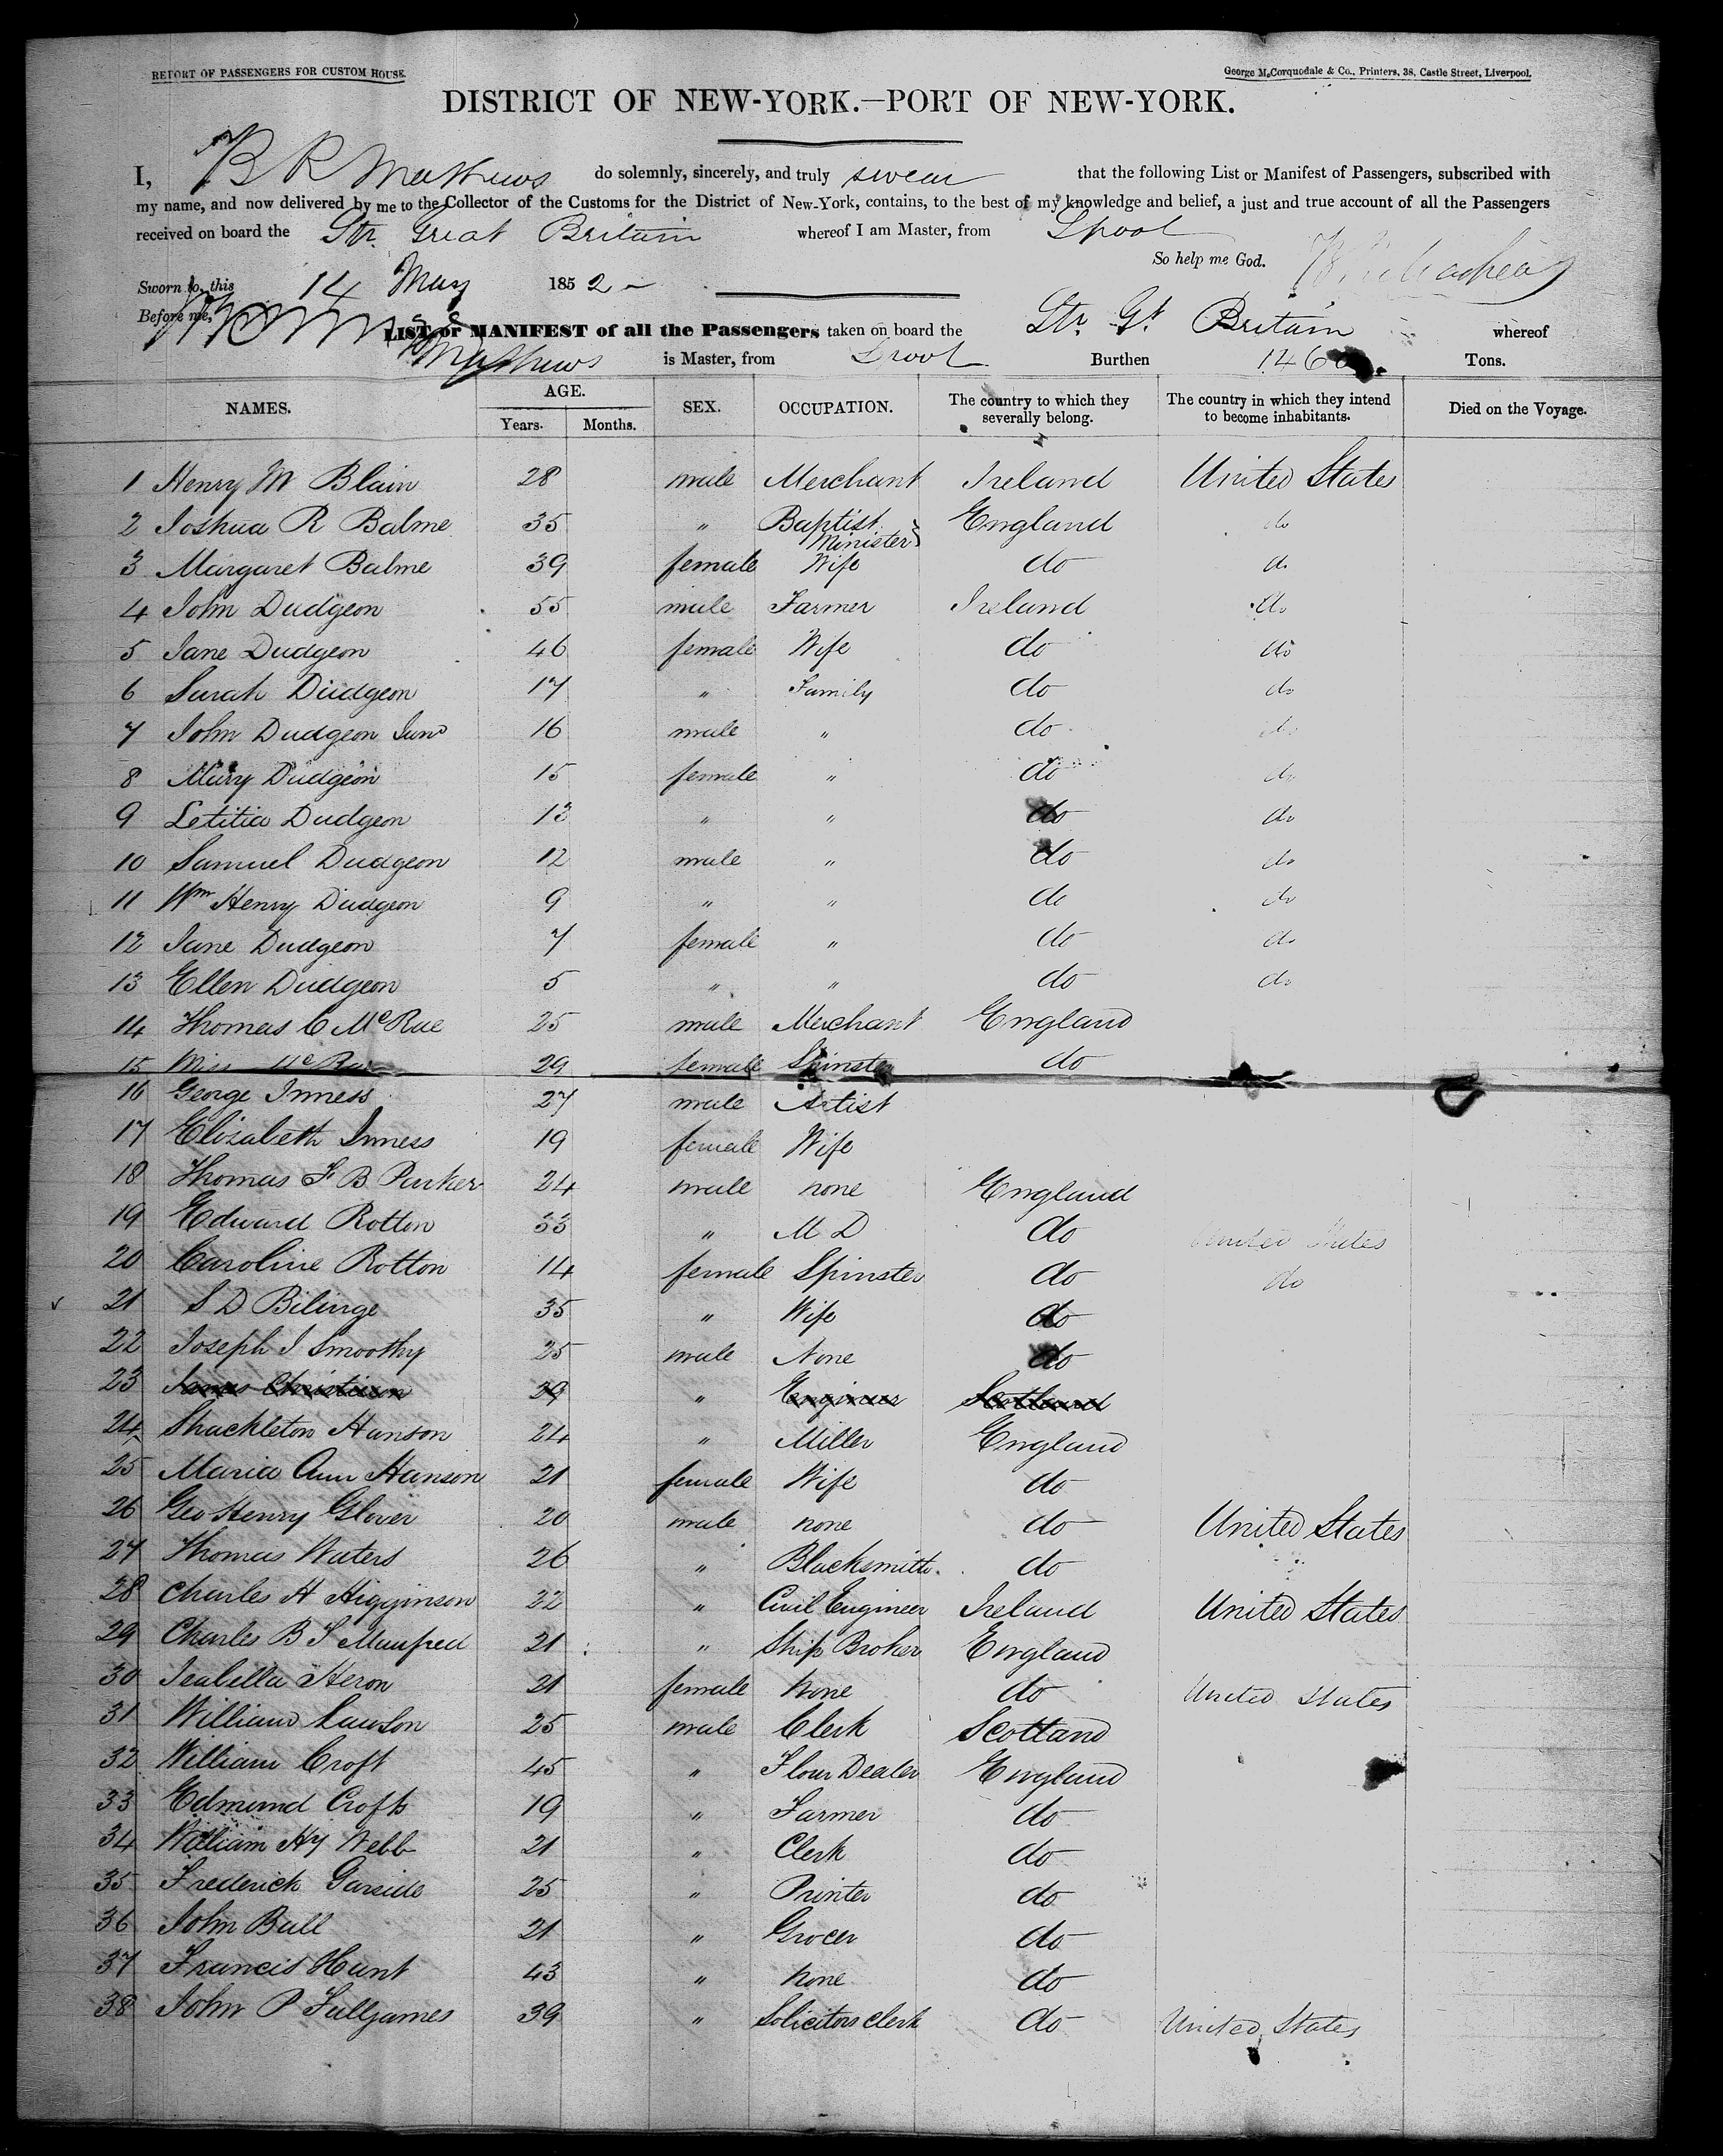 REPORT OF PASSENGERS FOR CUSTOM HOUSE.
George McCorquodale & Co., Printers, 38, Castle Street, Liverpool.
DISTRICT OF NEW-YORK.—PORT OF NEW-YORK.
I, B R Mathews do solemnly, sincerely, and truly swear that the following List or Manifest of Passengers, subscribed with
my name, and now delivered by me to the Collector of the Customs for the District of New-York, contains, to the best of my knowledge and belief, a just and true account of all the Passengers
received on board the Str. Great Britain whereof I am Master, from Lpool
So help me God.
Sworn to, this 14 May 1852
Before me,
LIST or MANIFEST of all the Passengers taken on board the Str Gt Britain whereof
Mathews is Master, from Lpool Burthen Tons.
NAMES. AGE. Years. Months. SEX. OCCUPATION. The country to which they severally belong. The country in which they intend to become inhabitants. Died on the Voyage.
1 Henry M Blain 28 male Merchant Ireland United States
2 Joshua R Balme 35 " Baptist Minister England do
3 Margaret Balme 39 female Wife do do
4 John Dudgeon 55 male Farmer Ireland do
5 Jane Dudgeon 46 female Wife do do
6 Sarah Dudgeon 17 " Family do do
7 John Dudgeon Junr 16 male " do do
8 Mary Dudgeon 15 female " do do
9 Letitia Dudgeon 13 " " do do
10 Samuel Dudgeon 12 male " do do
11 Wm Henry Dudgeon 9 " " do do
12 Jane Dudgeon 7 female " do do
13 Ellen Dudgeon 5 " " do do
14 Thomas C McRae 25 male Merchant England
15 Miss McRae 29 female Spinster do
16 George Inness 27 male Artist
17 Elizabeth Inness 19 female Wife
18 Thomas F B Parker 24 male none England
19 Edward Rotton 33 " M D do United States
20 Caroline Rotton 14 female Spinster do do
21 S D Bilinge 35 " Wife do
22 Joseph J Smoothy 25 male None do
23 James Christison 29 " Engineer Scotland
24 Shackleton Hanson 24 " Miller England
25 Maria Ann Hanson 21 female Wife do
26 Geo Henry Glover 20 male none do United States
27 Thomas Waters 26 " Blacksmith do
28 Charles H Higginson 22 " Civil Engineer Ireland United States
29 Charles B T Munfred 21 " Ship Broker England
30 Isabella Heron 21 female None do United States
31 William Lawson 25 male Clerk Scotland
32 William Croft 45 " Flour Dealer England
33 Edmund Croft 19 " Farmer do
34 William Hy Webb 21 " Clerk do
35 Frederick Garside 25 " Printer do
36 John Ball 21 " Grocer do
37 Francis Hunt 43 " None do
38 John P Fulljames 39 " Solicitors Clerk do United States